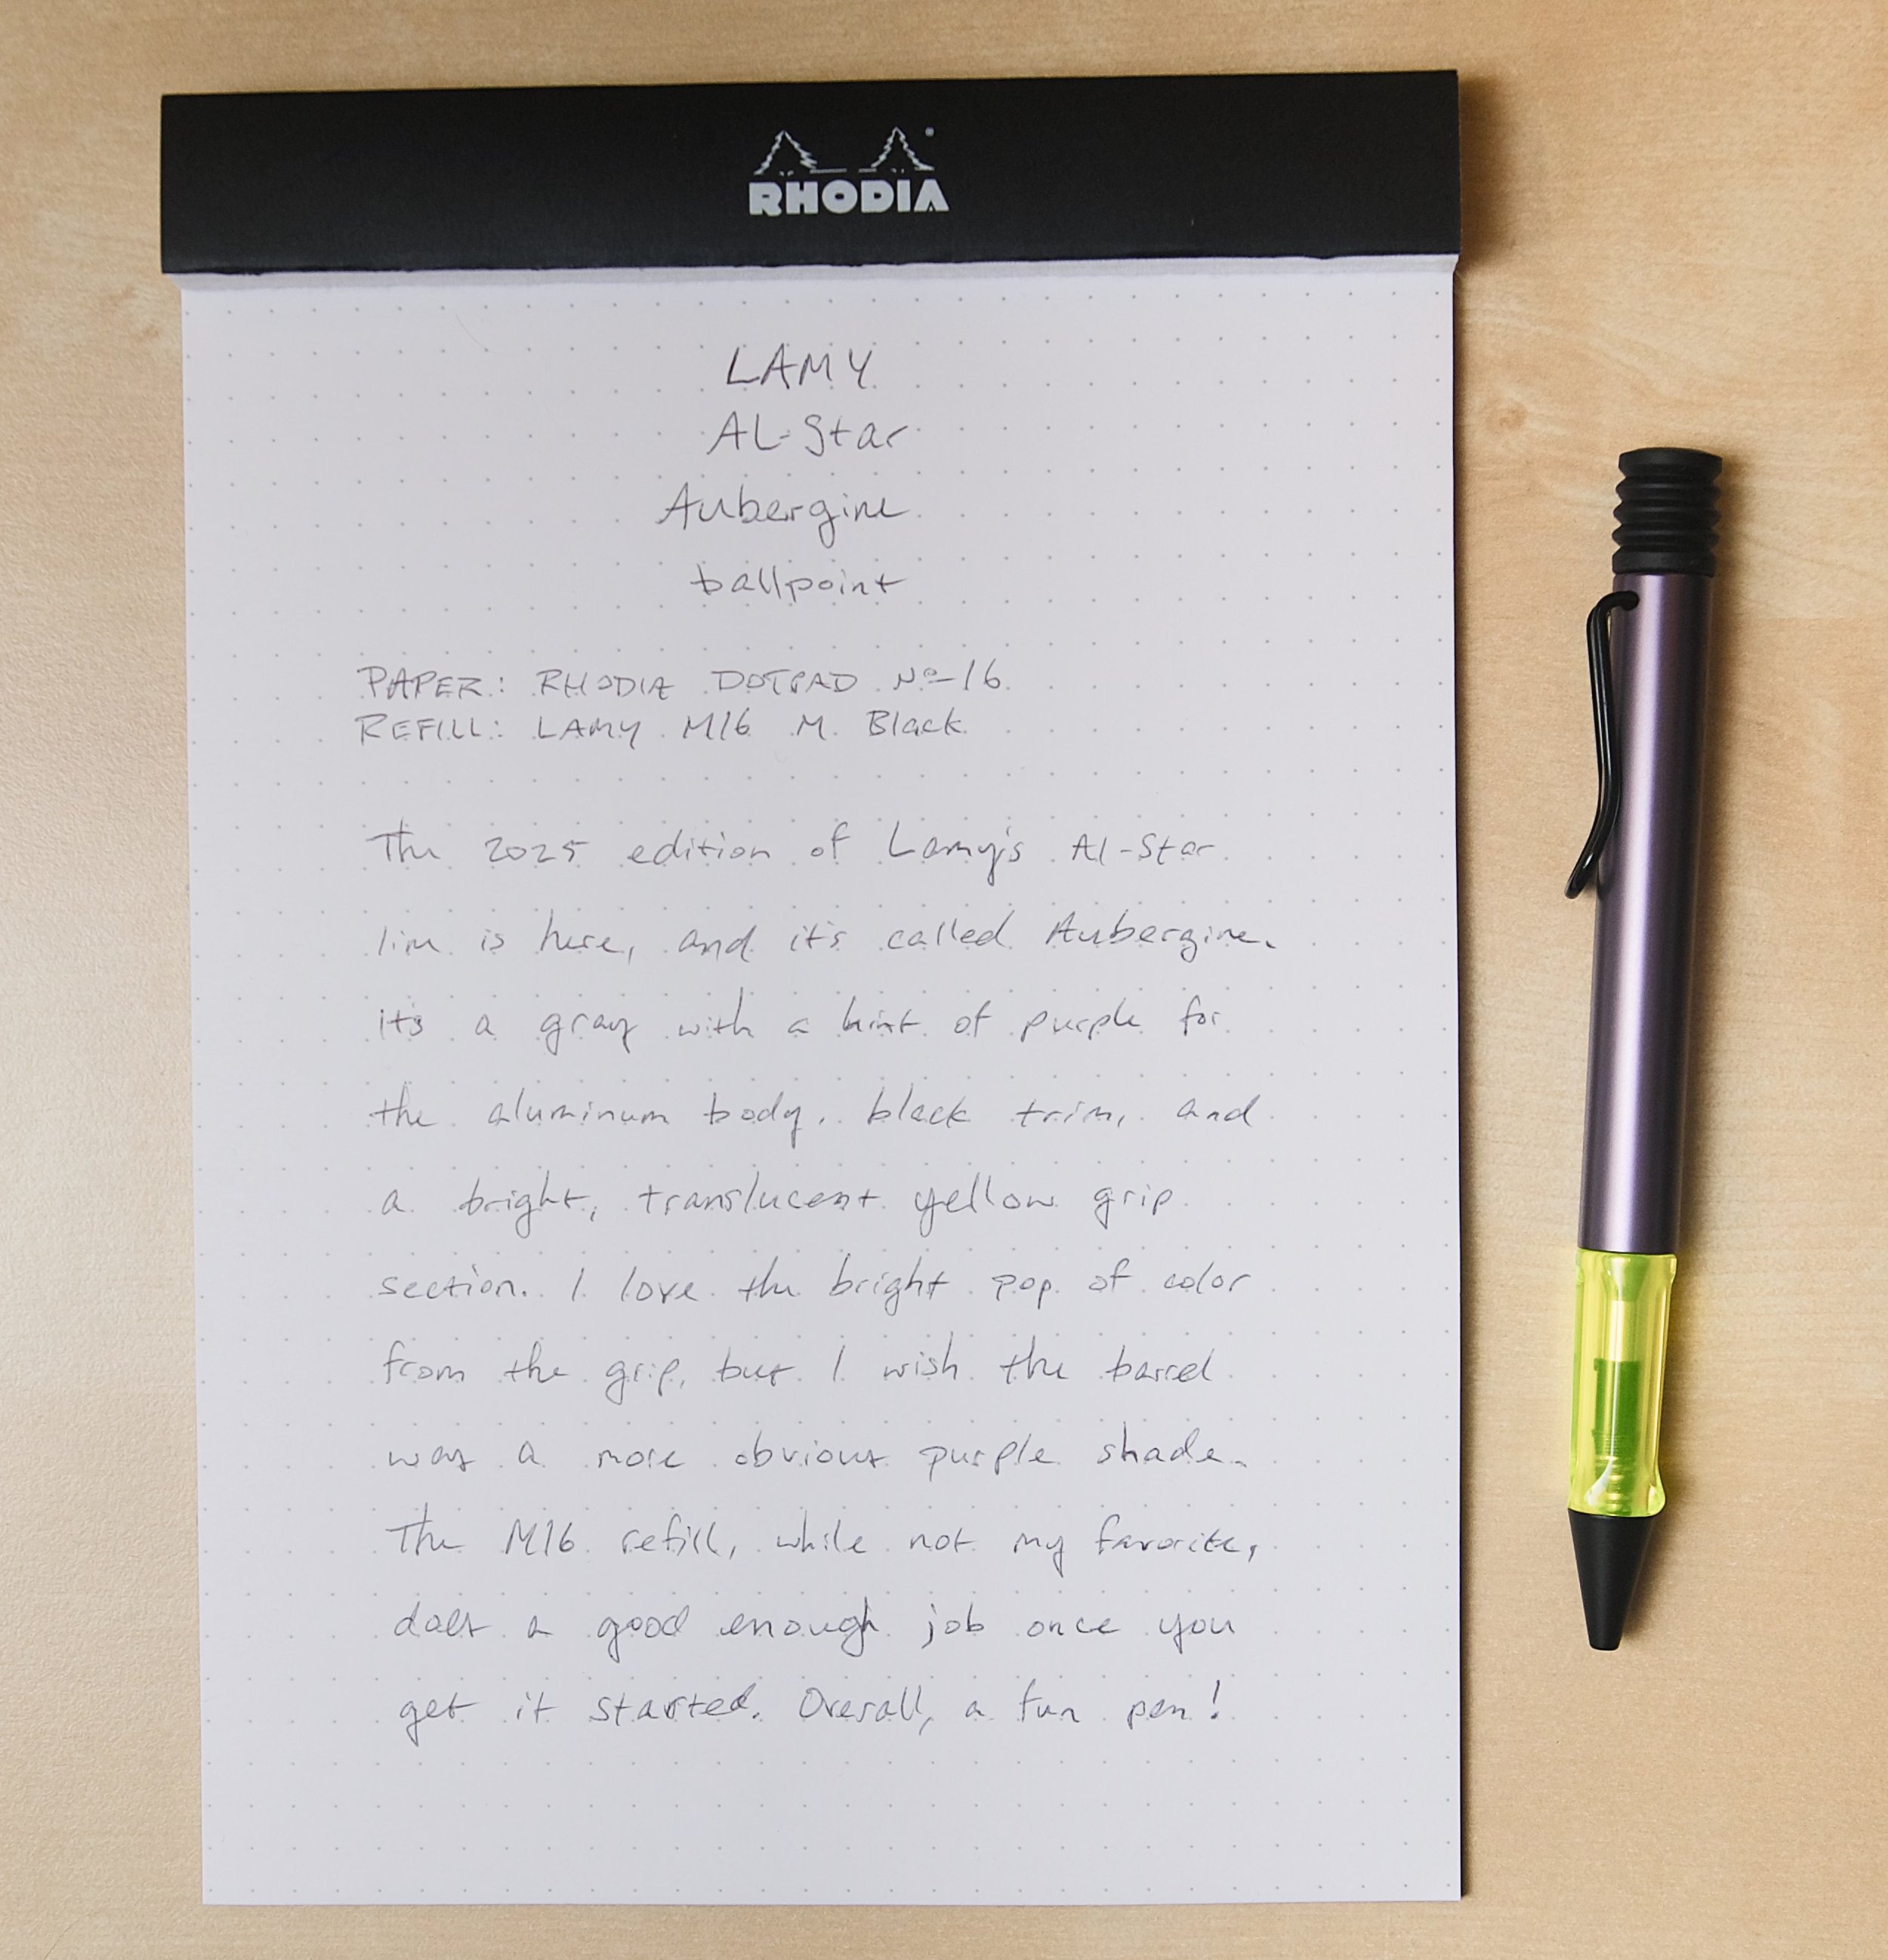 RHODIA
LAMY
AL-Star
Aubergine
ballpoint
PAPER: RHODIA DOTPAD Nº 16
REFILL: LAMY M16 M Black
The 2025 edition of Lamy's Al-Star
line is here, and it's called Aubergine.
it's a gray with a hint of purple for
the aluminum body, black trim, and
a bright, translucent yellow grip
section. I love the bright pop of color
from the grip, but I wish the barrel
was a more obvious purple shade.
The M16 refill, while not my favorite,
does a good enough job once you
get it started. Overall, a fun pen!